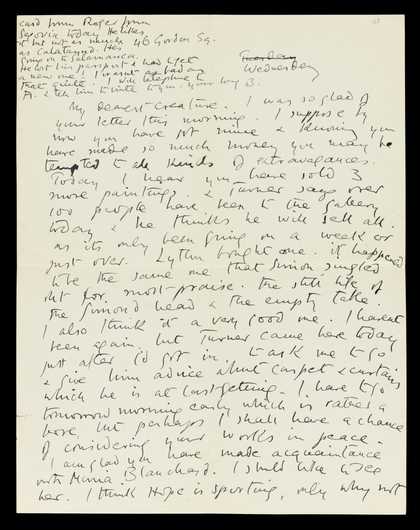 card from Roger from
Segovia today. He likes
it but not as much
as Calatayud. He's
going on to Salamanca.
He lost his passport & had to get
a new one! I wasn't as bad as
that quite. I will telephone to
& tell him to write to you. your loving B.
46 Gordon Sq.
Tuesday
Wednesday
My dearest creature. I was so glad of
your letter this morning. I suppose by
now you have got mine & knowing you
have made so much money you may be
tempted to all kinds of extravagances.
Today I hear you have sold 3
more paintings. & Turner says over
100 people have been to the gallery
today & he thinks he will sell all.
as its only been going on a week or
just over. Lytton bought one. it happened
to be the same one that Simon singled
out for most praise. the still life of
the Simone head & the empty table.
I also think it a very good one. I havent
been again, but Turner came here today
just after I'd got in, to ask me to go
& give him advice about carpet & curtains
which he is at last getting. I have to go
tomorrow morning early which is rather a
bore but perhaps I shall have a chance
of considering your works in peace.
I am glad you have made acquaintance
with Maria Blanchard. I should like to see
her. I think Hope is sporting, only why not